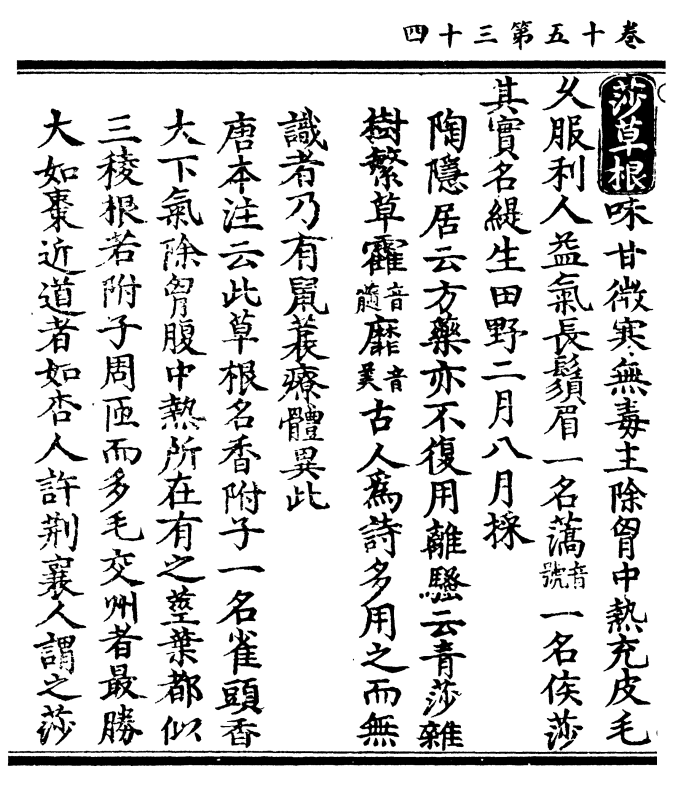 卷十五第三十四
莎草根味甘微寒無毒主除胷中熱充皮毛
久服利人益氣長鬚眉一名薃音號一名侯莎
其實名緹生田野二月八月採
陶隱居云方藥亦不復用離騷云青莎雜
樹繁草靃音髓靡音美古人爲詩多用之而無
識者乃有鼠蓑療體異此
唐本注云此草根名香附子一名雀頭香
大下氣除胷腹中熱所在有之莖葉都似
三稜根若附子周匝而多毛交州者最勝
大如棗近道者如杏人許荊襄人謂之莎